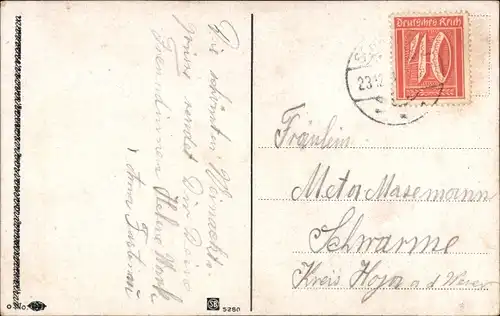 Die schönsten Weihnachts-
grüsse sendet Dir Deine
Freundinnen Helene
u Anna
Deutsches Reich
40
23.12
Fräulein
Meta Masemann
Schwarme
Kreis Hoya a d Weser
SB
5280